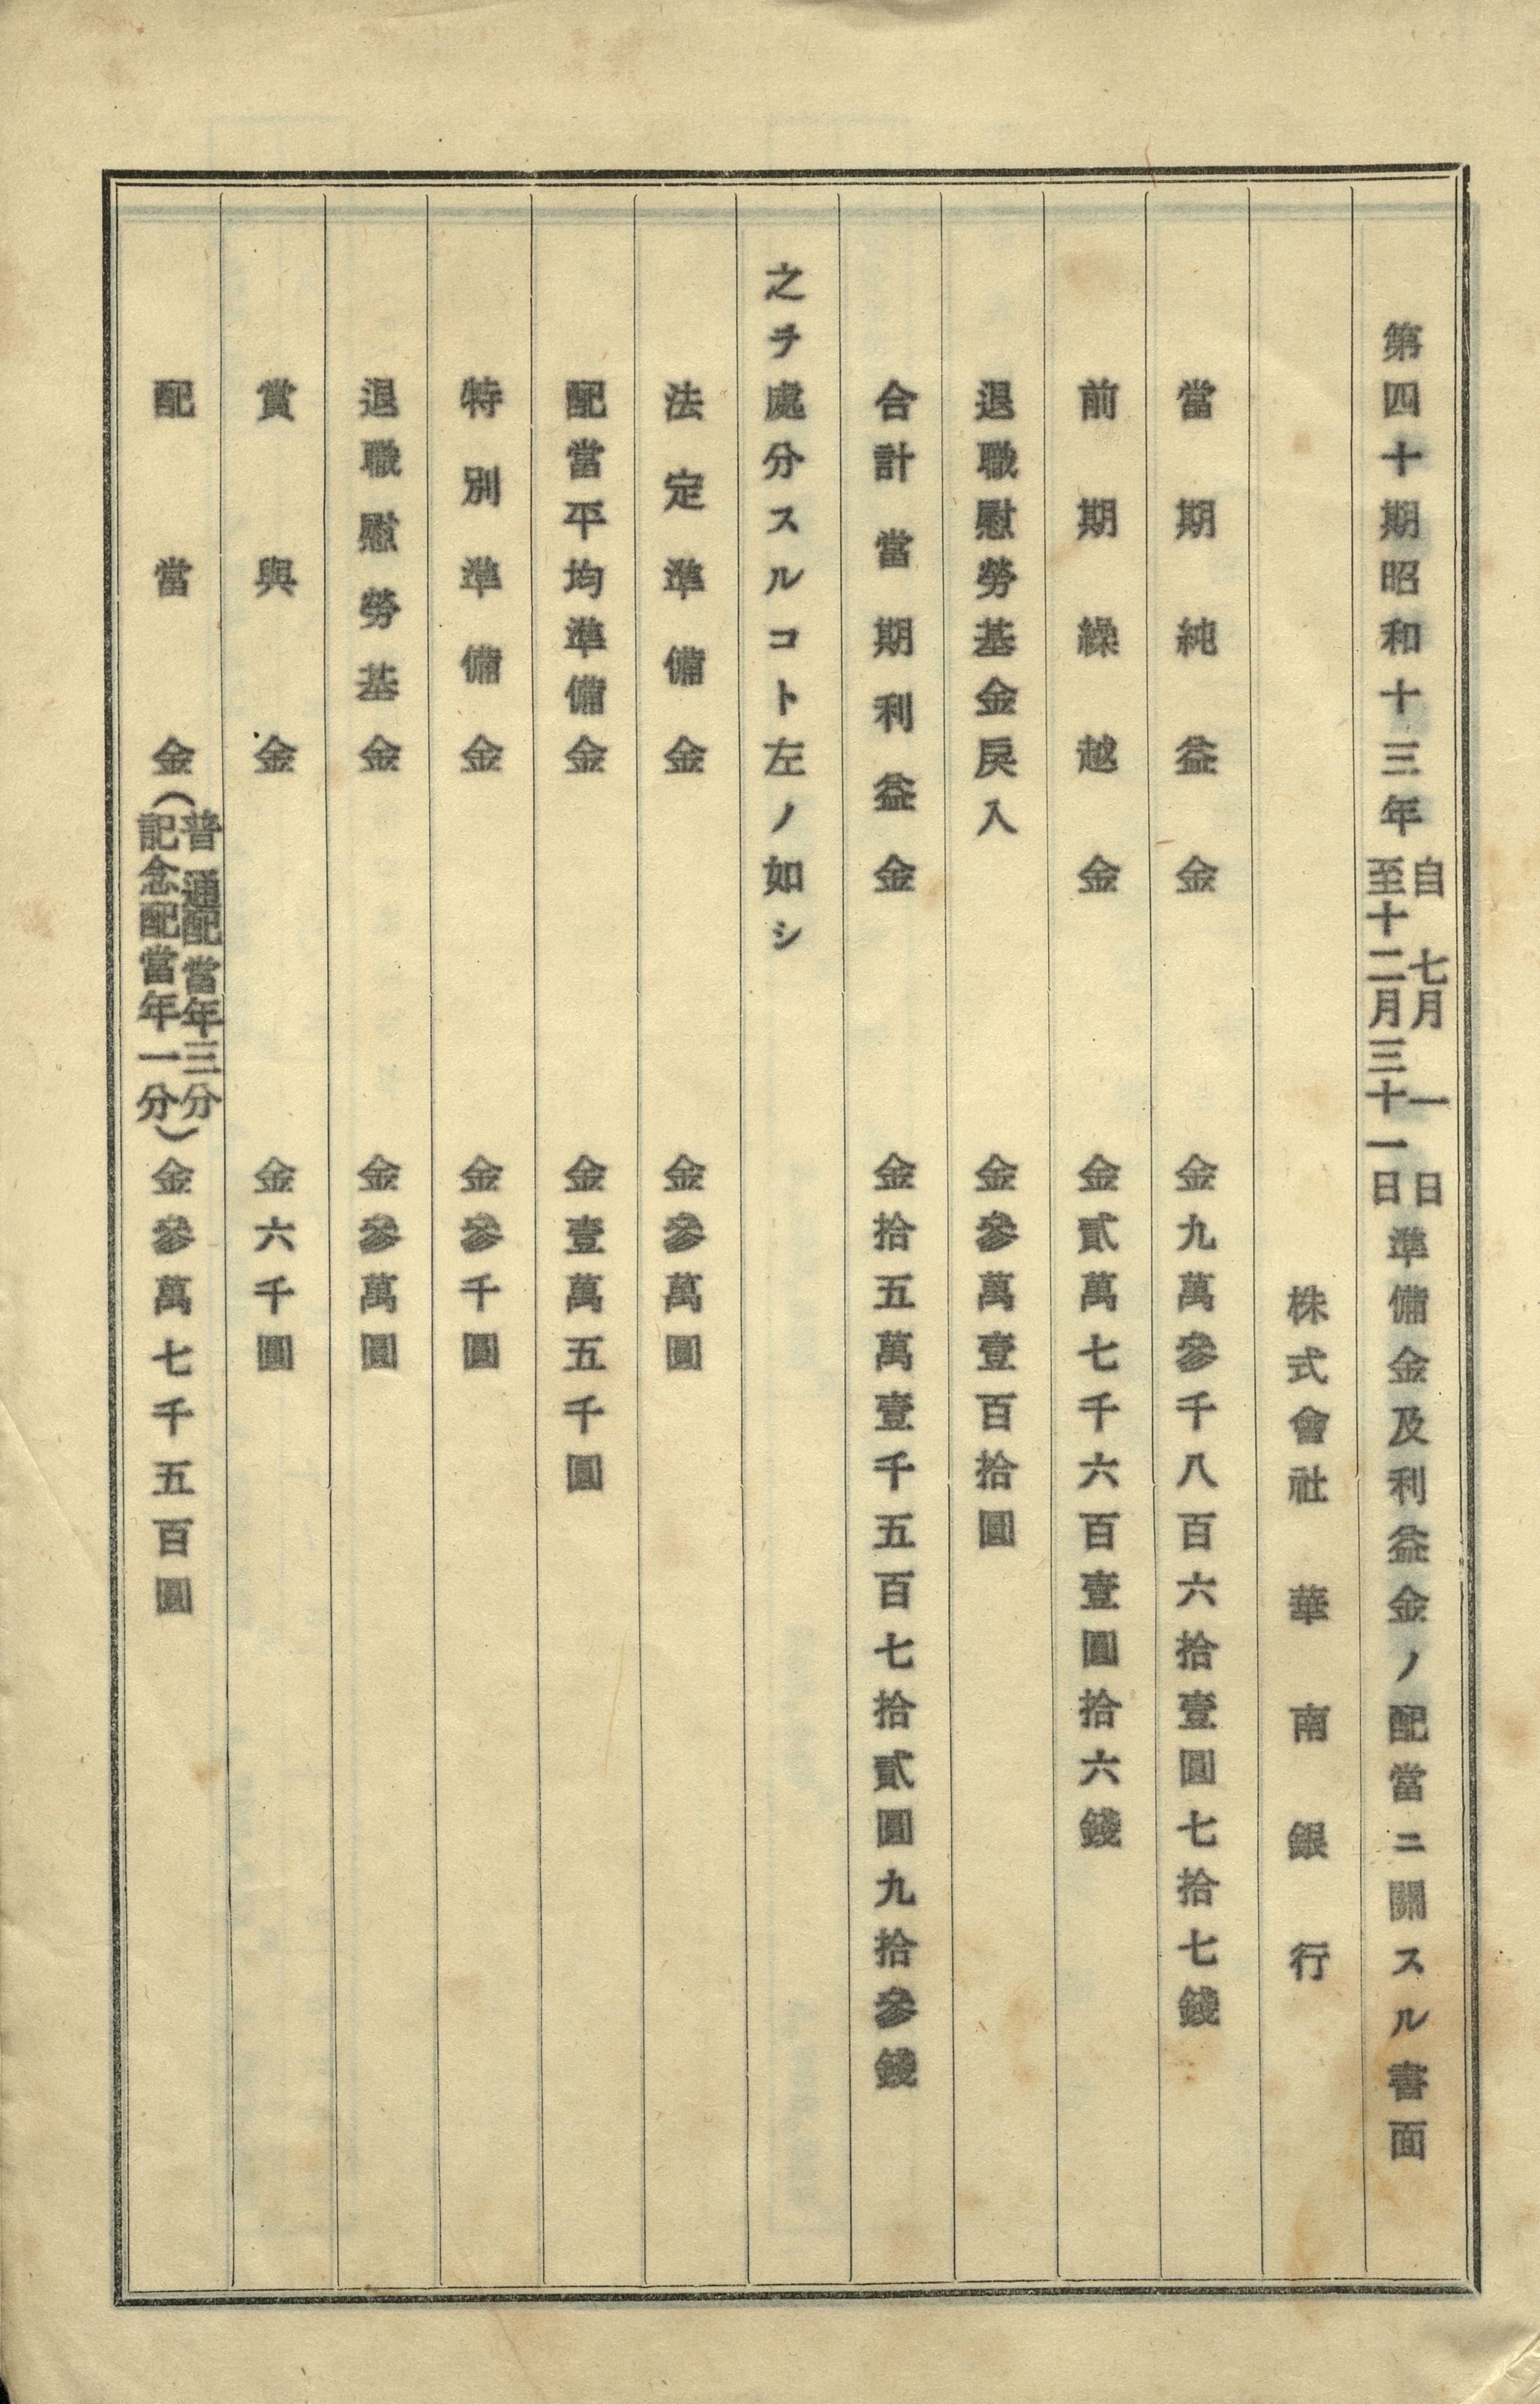 第四十期昭和十三年自七月一日至十二月三十一日準備金及利益金ノ配當ニ關スル書面
株式會社華南銀行
當期純益金 金九萬參千八百六拾壹圓七拾七錢
前期繰越金 金貳萬七千六百壹圓拾六錢
退職慰勞基金戾入 金參萬壹百拾圓
合計當期利益金 金拾五萬壹千五百七拾貳圓九拾參錢
之ヲ處分スルコト左ノ如シ
法定準備金 金參萬圓
配當平均準備金 金壹萬五千圓
特別準備金 金參千圓
退職慰勞基金 金參萬圓
賞與金 金六千圓
配當金(普通配當年三分 記念配當年一分) 金參萬七千五百圓